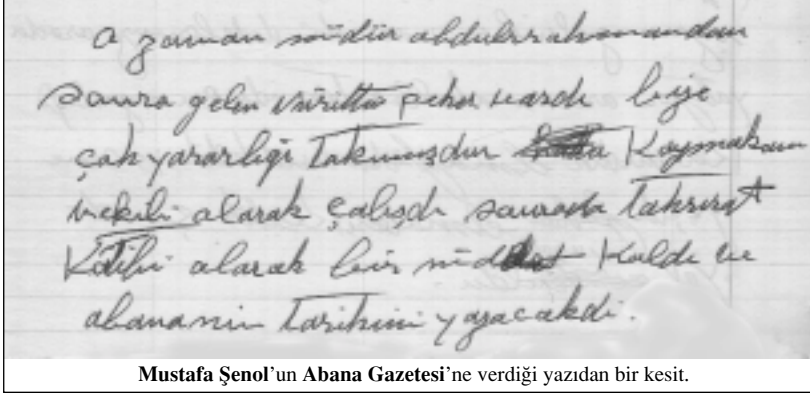 O zaman müdür abdulrrahmandan
Sonra gelen nurettin peker vardı bize
çok yararlığı Takunmuşdur Kaymakam
vekili olarak çalışdı sonrada Tahrirat
Kâtibi olarak bir müddet Kaldı ve
abananın Tarihini yazacakdı.
Mustafa Şenol'un Abana Gazetesi'ne verdiği yazıdan bir kesit.